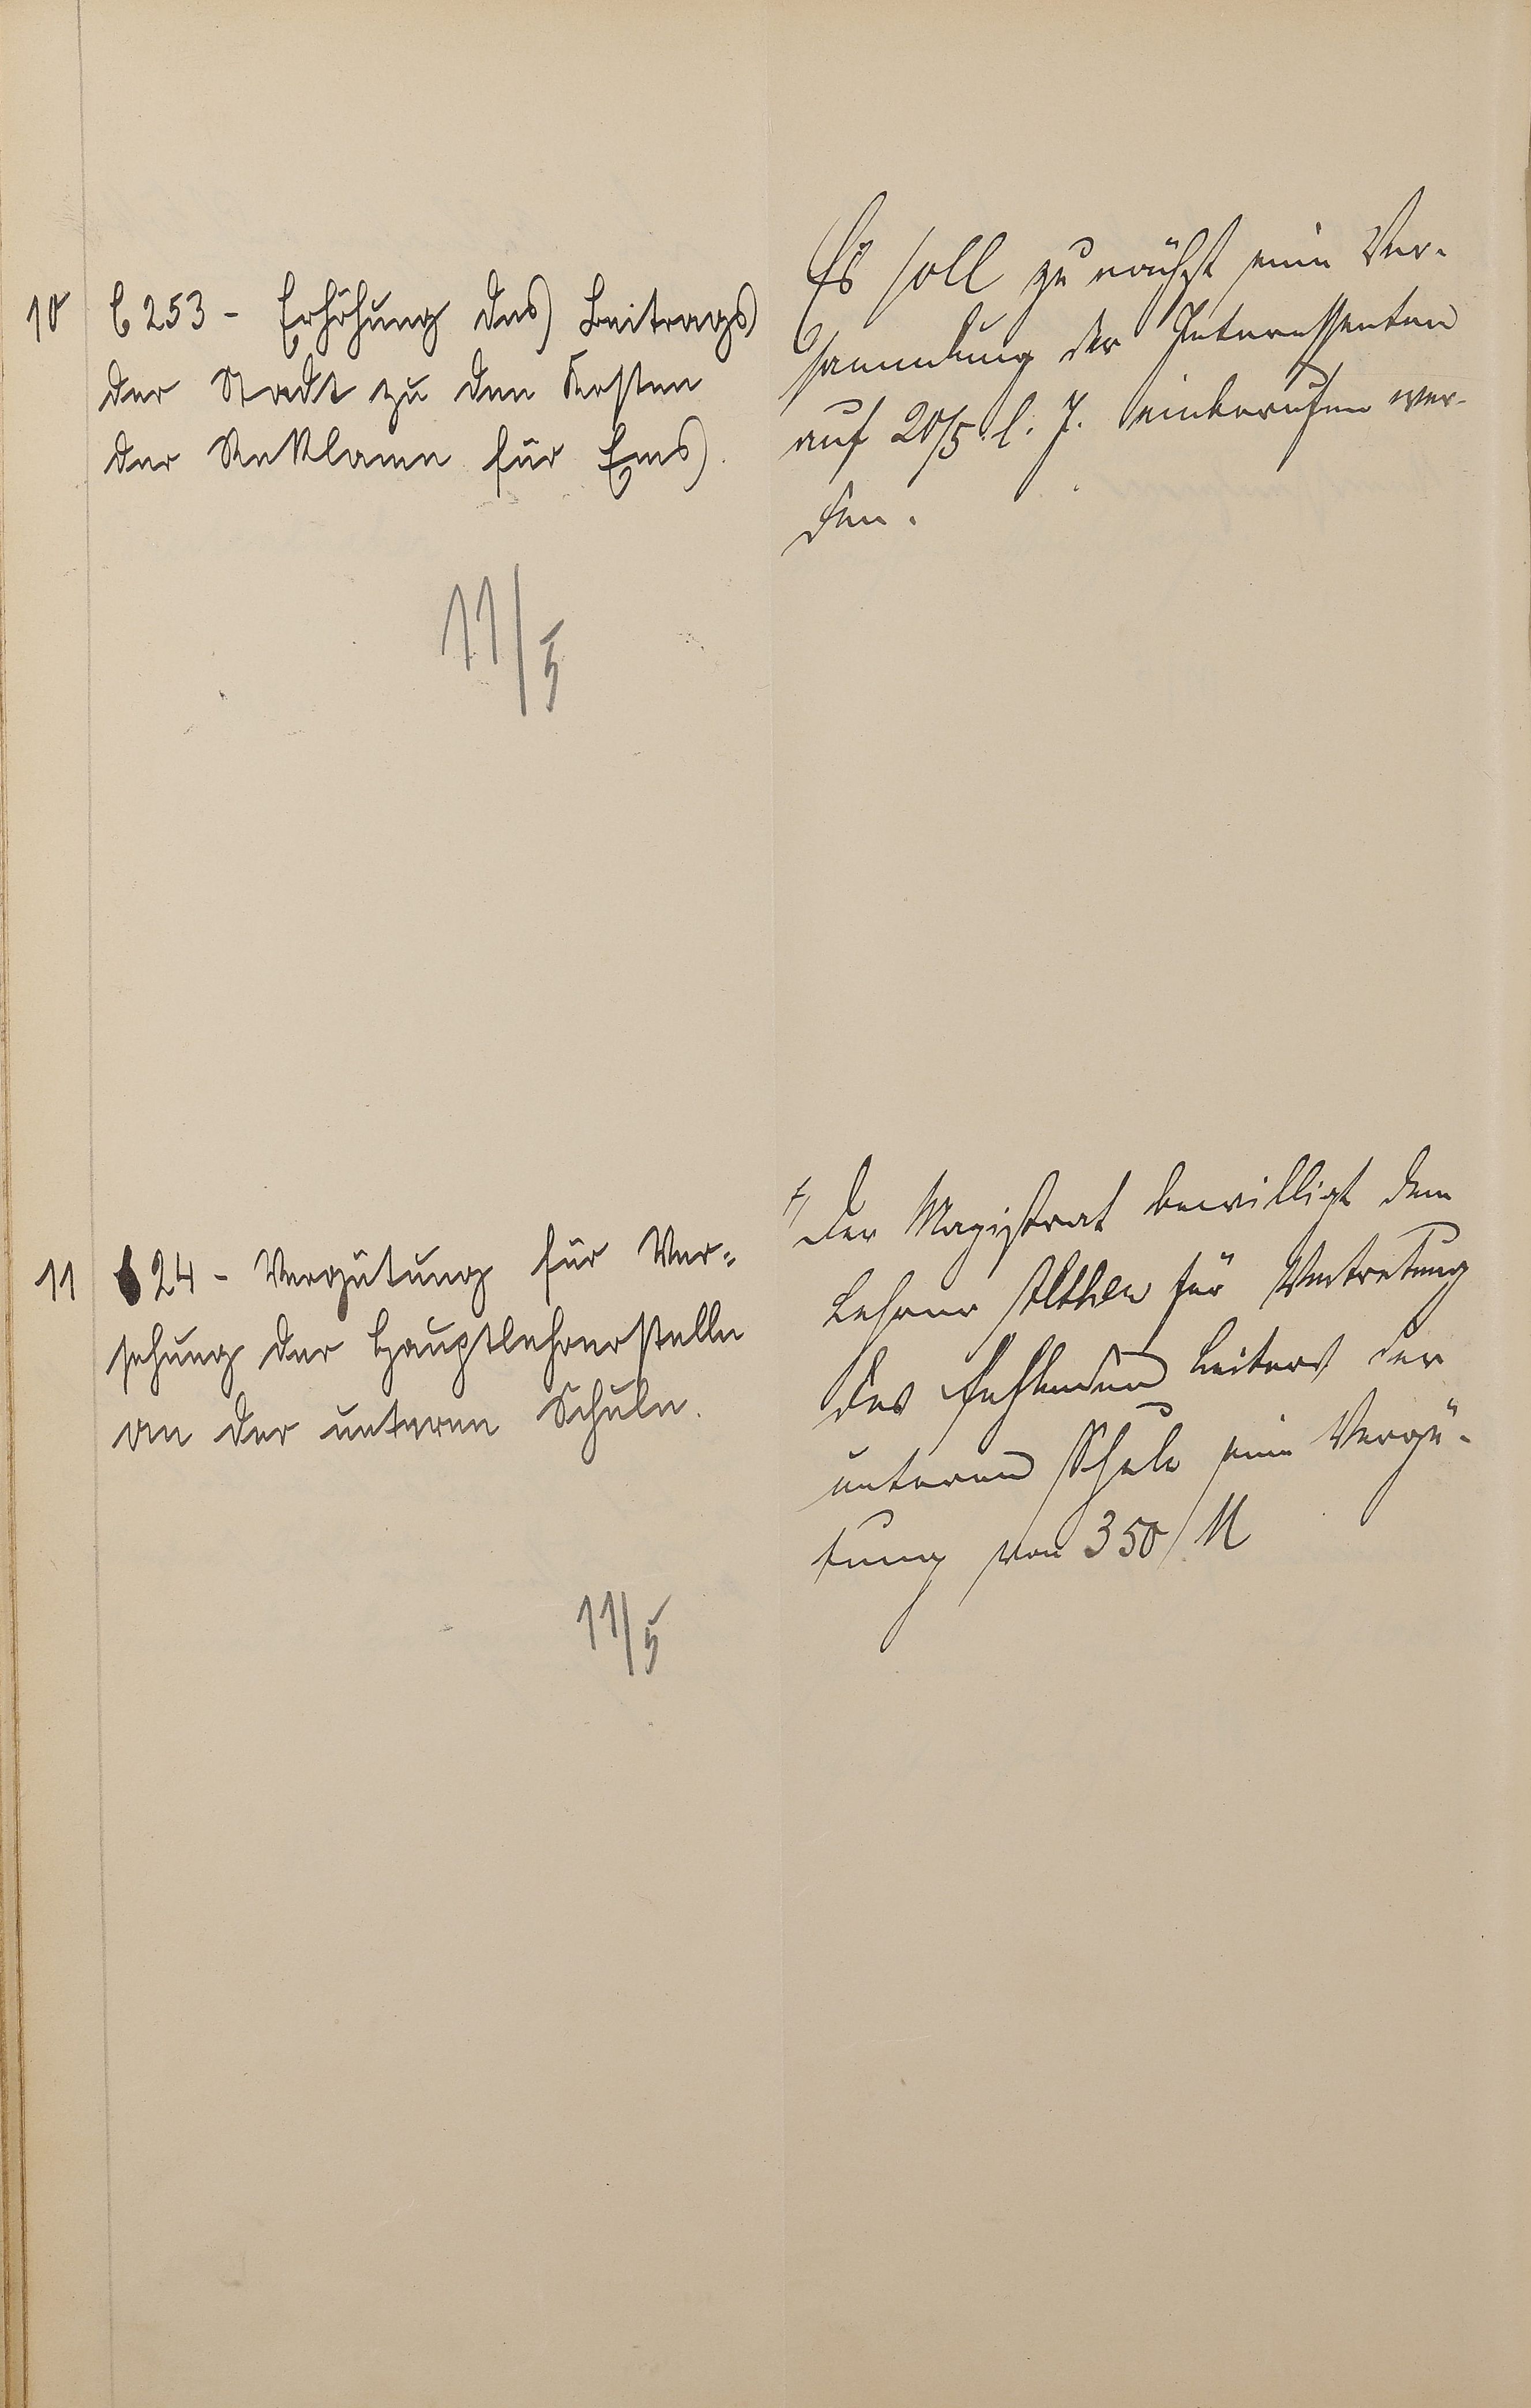 10 C 253 - Erhöhung des Beitrags
der Stadt zu den Kosten
der Reklame für Ems.
11/5
Es soll zunächst eine Ver-
sammlung der Interessenten
auf 20/5 l. J. einberufen wer-
den.
11 C 24 - Vergütung für Ver-
sehung der Hauptlehrerstelle
an der unteren Schule.
11/5
Der Magistrat bewilligt dem
Lehrer für Vertretung
des fehlenden Leiters der
unteren Schule eine Vergü-
tung von 350 M